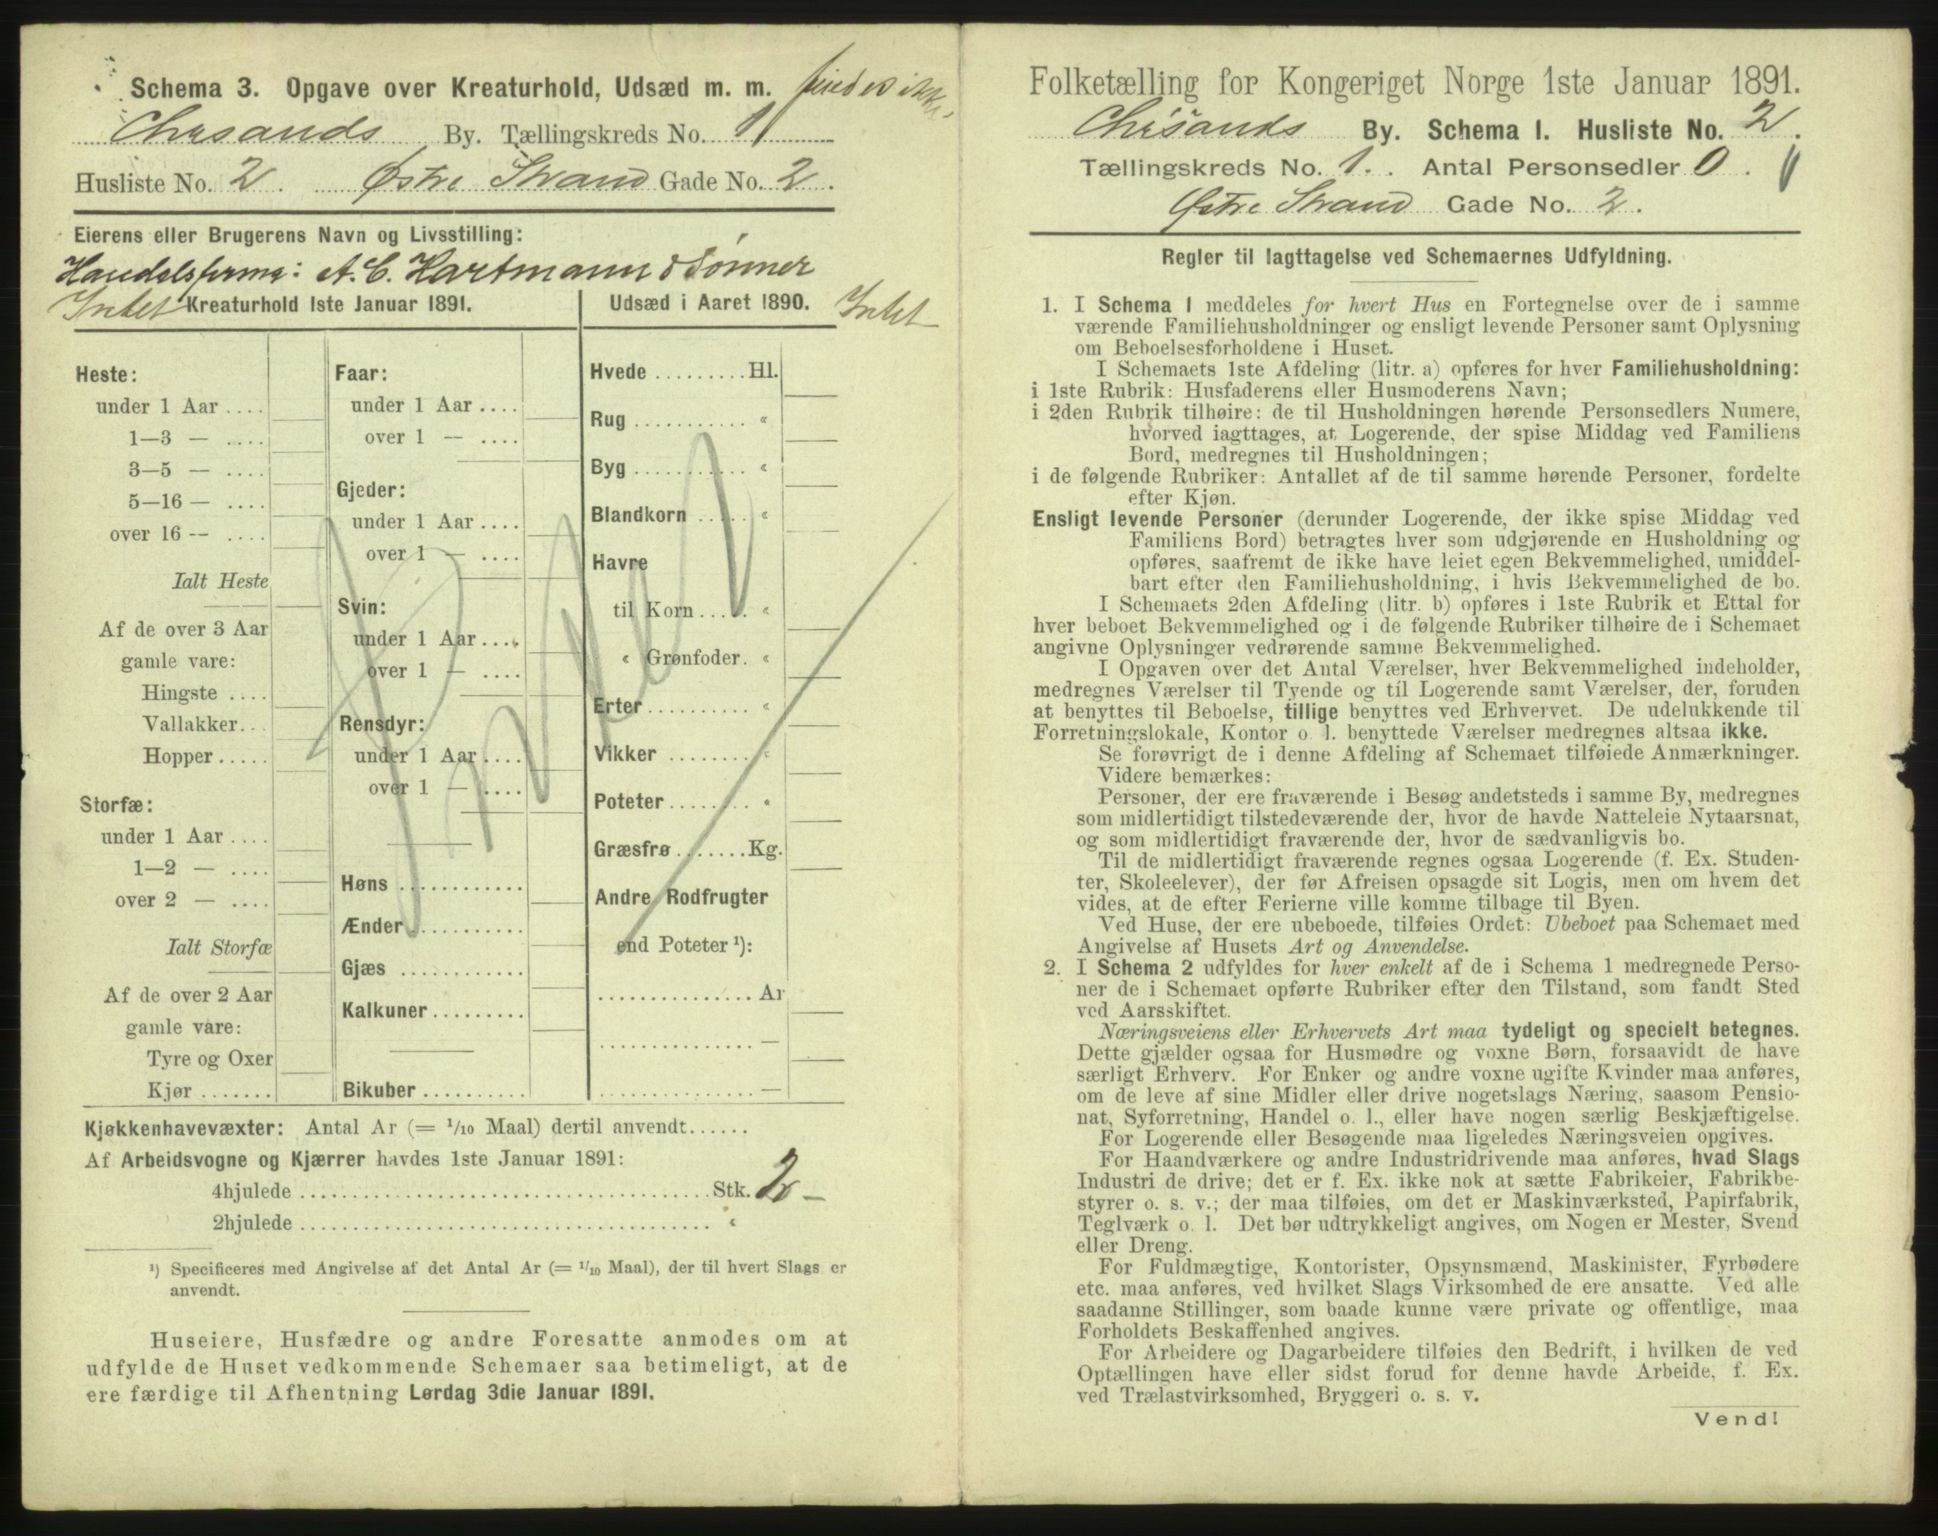 Schema 3. Opgave over Kreaturhold, Udsæd m. m. findes ikke
Chrsands By. Tællingskreds No. 1
Husliste No. 2. Østre Strand Gade No. 2.
Eierens eller Brugerens Navn og Livsstilling:
Handelsfirma: A. C. Hartmann & Sønner
Intet Kreaturhold 1ste Januar 1891.
Heste:
under 1 Aar ....
1—3 — ....
3—5 — ....
5—16 — ....
over 16 — ....
Ialt Heste
Af de over 3 Aar
gamle vare:
Hingste ....
Vallakker...
Hopper .....
Storfæ:
under 1 Aar ....
1—2 — ....
over 2 — ....
Ialt Storfæ
Af de over 2 Aar
gamle vare:
Tyre og Oxer
Kjør .......
Faar:
under 1 Aar ....
over 1 — ....
Gjeder:
under 1 Aar ....
over 1 — ....
Svin:
under 1 Aar ....
over 1 — ....
Rensdyr:
under 1 Aar ....
over 1 — ....
Høns ............
Ænder ...........
Gjæs ............
Kalkuner .........
Bikuber ..........
Udsæd i Aaret 1890. Intet
Hvede ......... Hl.
Rug ........... «
Byg ........... «
Blandkorn ..... «
Havre
til Korn ..... «
« Grønfoder. «
Erter .......... «
Vikker ........ «
Poteter ........ «
Græsfrø ....... Kg.
Andre Rodfrugter
end Poteter ¹):
............... Ar
............... —
............... —
Kjøkkenhavevæxter: Antal Ar (= 1/10 Maal) dertil anvendt......
Af Arbeidsvogne og Kjærrer havdes 1ste Januar 1891:
4hjulede ........................................ Stk. 2 —
2hjulede ........................................ «
¹) Specificeres med Angivelse af det Antal Ar (= 1/10 Maal), der til hvert Slags er
anvendt.
Huseiere, Husfædre og andre Foresatte anmodes om at
udfylde de Huset vedkommende Schemaer saa betimeligt, at de
ere færdige til Afhentning Lørdag 3die Januar 1891.
Folketælling for Kongeriget Norge 1ste Januar 1891.
Chrsands By. Schema 1. Husliste No. 2.
Tællingskreds No. 1. Antal Personsedler 0.
Østre Strand Gade No. 2.
Regler til Iagttagelse ved Schemaernes Udfyldning.
1. I Schema 1 meddeles for hvert Hus en Fortegnelse over de i samme
værende Familiehusholdninger og ensligt levende Personer samt Oplysning
om Beboelsesforholdene i Huset.
I Schemaets 1ste Afdeling (litr. a) opføres for hver Familiehusholdning:
i 1ste Rubrik: Husfaderens eller Husmoderens Navn;
i 2den Rubrik tilhøire: de til Husholdningen hørende Personsedlers Numere,
hvorved iagttages, at Logerende, der spise Middag ved Familiens
Bord, medregnes til Husholdningen;
i de følgende Rubriker: Antallet af de til samme hørende Personer, fordelte
efter Kjøn.
Ensligt levende Personer (derunder Logerende, der ikke spise Middag ved
Familiens Bord) betragtes hver som udgjørende en Husholdning og
opføres, saafremt de ikke have leiet egen Bekvemmelighed, umiddel-
bart efter den Familiehusholdning, i hvis Bekvemmelighed de bo.
I Schemaets 2den Afdeling (litr. b) opføres i 1ste Rubrik et Ettal for
hver beboet Bekvemmelighed og i de følgende Rubriker tilhøire de i Schemaet
angivne Oplysninger vedrørende samme Bekvemmelighed.
I Opgaven over det Antal Værelser, hver Bekvemmelighed indeholder,
medregnes Værelser til Tyende og til Logerende samt Værelser, der, foruden
at benyttes til Beboelse, tillige benyttes ved Erhvervet. De udelukkende til
Forretningslokale, Kontor o. l. benyttede Værelser medregnes altsaa ikke.
Se forøvrigt de i denne Afdeling af Schemaet tilføiede Anmærkninger.
Videre bemærkes:
Personer, der ere fraværende i Besøg andetsteds i samme By, medregnes
som midlertidigt tilstedeværende der, hvor de havde Natteleie Nytaarsnat,
og som midlertidigt fraværende der, hvor de sædvanligvis bo.
Til de midlertidigt fraværende regnes ogsaa Logerende (f. Ex. Studen-
ter, Skoleelever), der før Afreisen opsagde sit Logis, men om hvem det
vides, at de efter Ferierne ville komme tilbage til Byen.
Ved Huse, der ere ubeboede, tilføies Ordet: Ubeboet paa Schemaet med
Angivelse af Husets Art og Anvendelse.
2. I Schema 2 udfyldes for hver enkelt af de i Schema 1 medregnede Perso-
ner de i Schemaet opførte Rubriker efter den Tilstand, som fandt Sted
ved Aarsskiftet.
Næringsveiens eller Erhvervets Art maa tydeligt og specielt betegnes.
Dette gjælder ogsaa for Husmødre og voxne Børn, forsaavidt de have
særligt Erhverv. For Enker og andre voxne ugifte Kvinder maa anføres,
om de leve af sine Midler eller drive nogetslags Næring, saasom Pensio-
nat, Syforretning, Handel o. l., eller have nogen særlig Beskjæftigelse.
For Logerende eller Besøgende maa ligeledes Næringsveien opgives.
For Haandværkere og andre Industridrivende maa anføres, hvad Slags
Industri de drive; det er f. Ex. ikke nok at sætte Fabrikeier, Fabrikbe-
styrer o. s. v.; der maa tilføies, om det er Maskinværksted, Papirfabrik,
Teglværk o. l. Det bør udtrykkeligt angives, om Nogen er Mester, Svend
eller Dreng.
For Fuldmægtige, Kontorister, Opsynsmænd, Maskinister, Fyrbødere
etc. maa anføres, ved hvilket Slags Virksomhed de ere ansatte. Ved alle
saadanne Stillinger, som baade kunne være private og offentlige, maa
Forholdets Beskaffenhed angives.
For Arbeidere og Dagarbeidere tilføies den Bedrift, i hvilken de ved
Optællingen have eller sidst forud for denne havde Arbeide, f. Ex.
ved Trælastvirksomhed, Bryggeri o. s. v.
Vend!